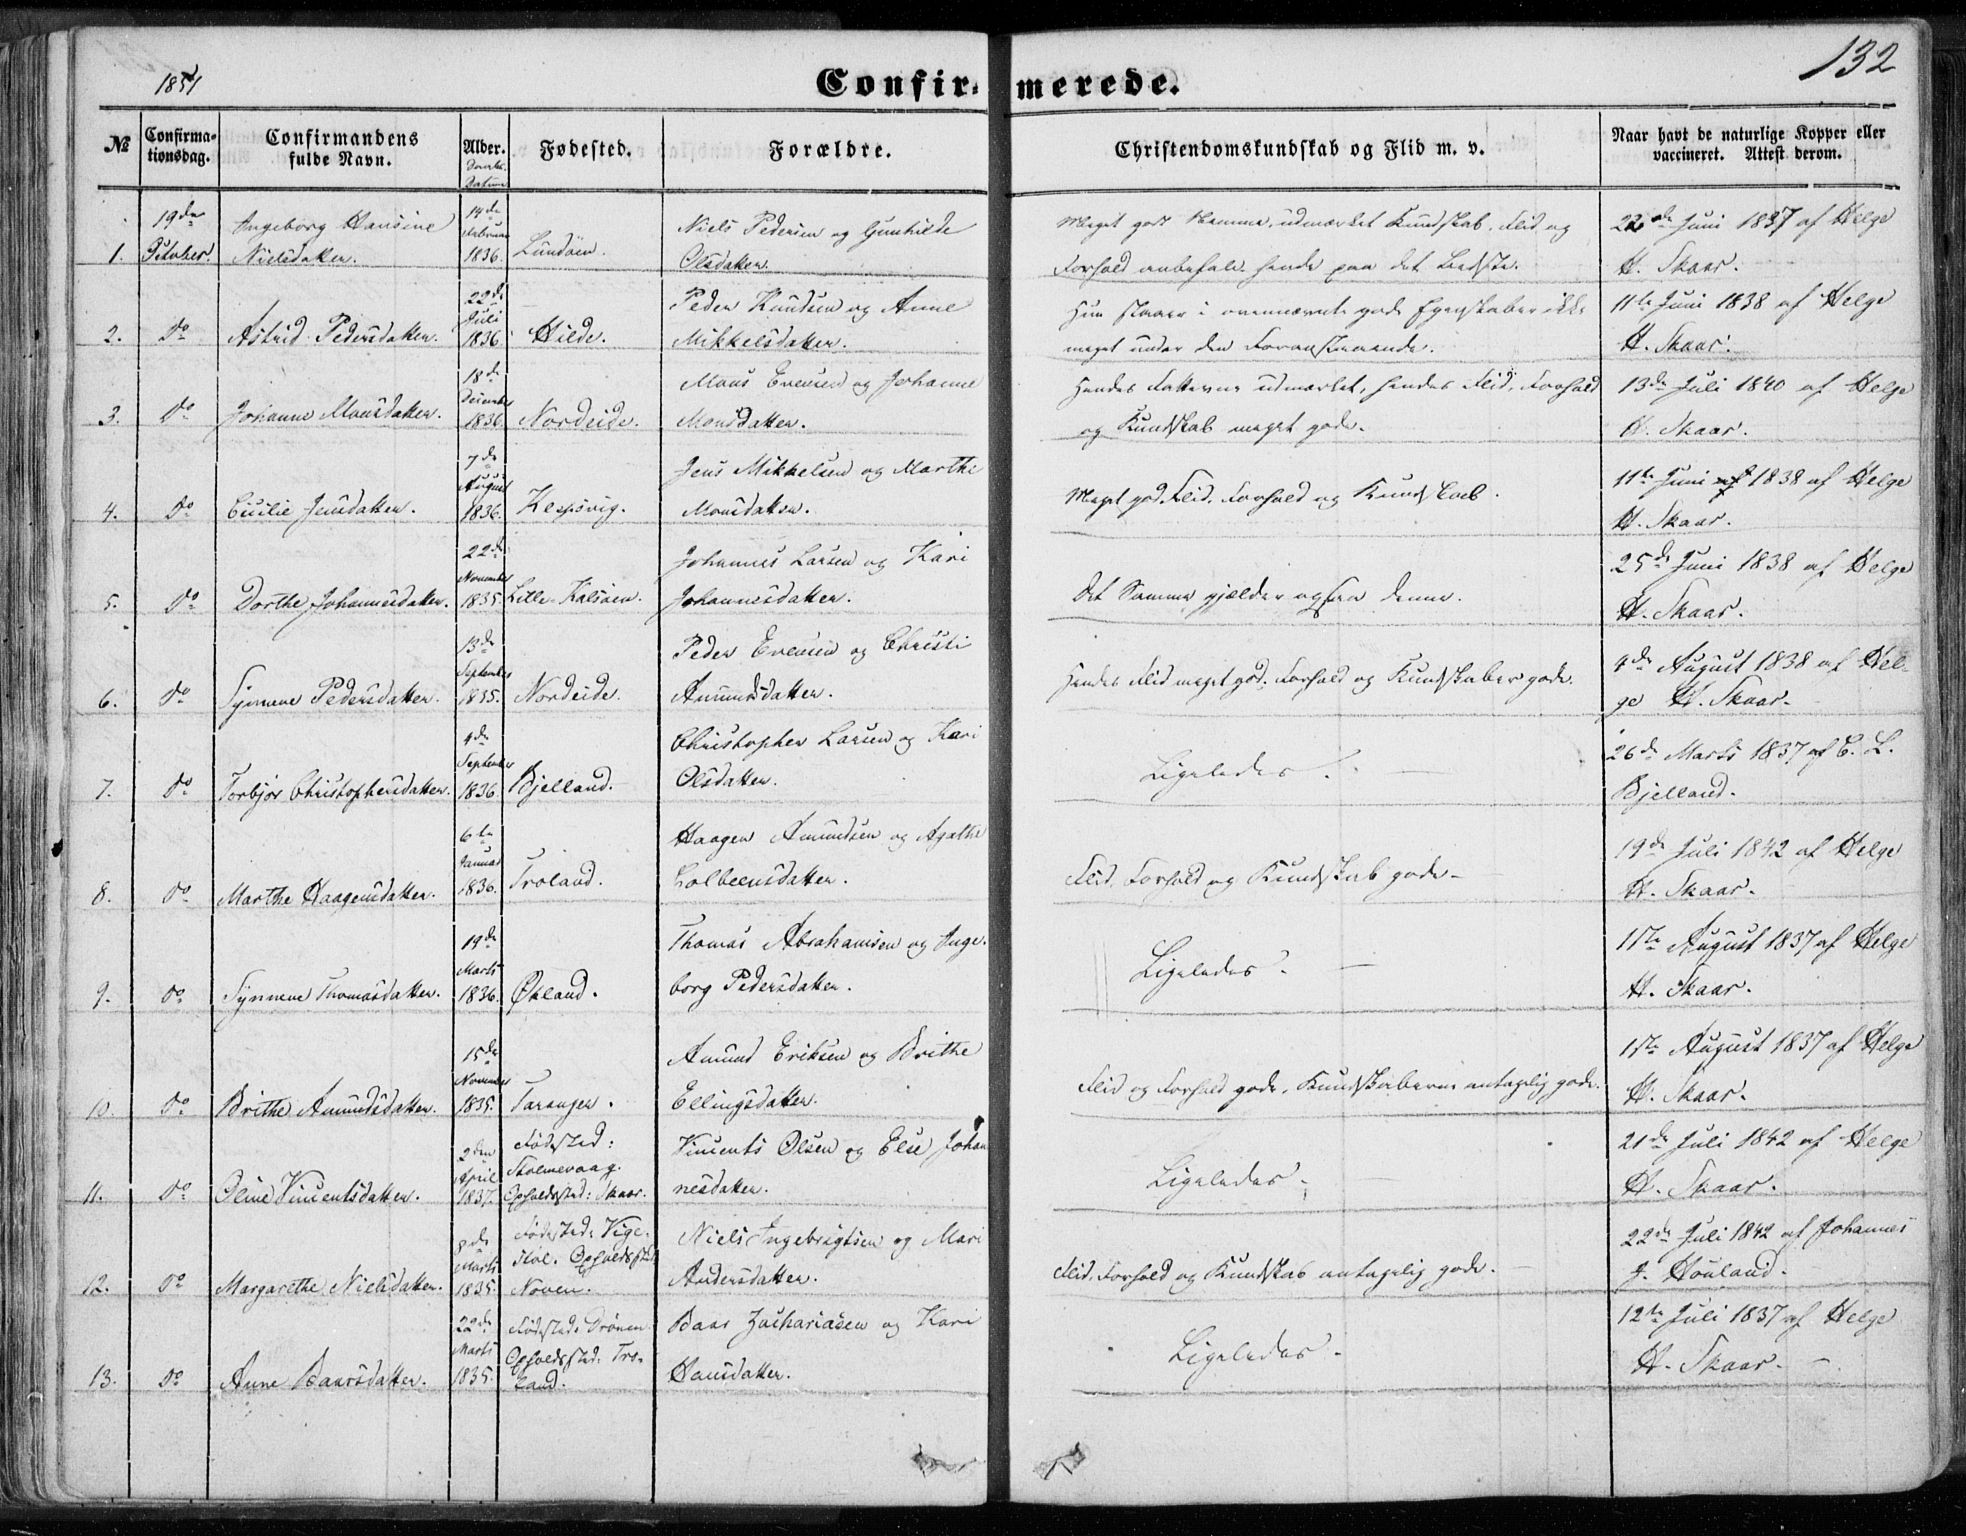 1851
Confirmerede.
132
№
Confirmationsdag.
Confirmandens fulde Navn.
Alder.
Daabs-Datum
Fødested.
Forældre.
Christendomskundskab og Flid m. v.
Naar havt de naturlige Kopper eller vaccineret. Attest derom.
1. 19de October. Ingeborg Hansine Nielsdatter. 14de Februar 1836. Lundøen. Niels Pedersen og Gunhilde Olsdatter. Meget godt Nemme, udmærket Kundskab, Flid og Forhold anbefale hende paa det Bedste. 22de Juni 1837 af Helge H. Skaar.
2. Do Astrid Pedersdatter. 22de Juli 1836. Hilde. Peder Knudsen og Anne Mikkelsdatter. Hun staaer i ovennævnte gode Egenskaber ikke meget under den Foranstaaende. 11te Juni 1838 af Helge H. Skaar.
3. Do Johanne Monsdatter. 18de December 1836. Nordeide. Mons Evensen og Johanne Monsdatter. Hendes Fatteevne udmærket, hendes Flid, Forhold og Kundskab meget gode. 13de Juli 1840 af Helge H. Skaar.
4. Do Cicilie Jensdatter. 7de August 1836. Kespsvig. Jens Mikkelsen og Marthe Monsdatter. Meget god Flid, Forhold og Kundskab. 11te Juni 1838 af Helge H. Skaar.
5. Do Dorthe Johannesdatter. 22de November 1835. Lille-Kalsøen. Johannes Larsen og Kari Johannesdatter. Det Samme gjælder ogsaa denne. 25de Juni 1838 af Helge H. Skaar.
6. Do Synneve Pedersdatter. 13de September 1835. Nordeide. Peder Evensen og Christi Amundsdatter. Hendes Flid meget god, Forhold og Kundskaber gode. 4de August 1838 af Helge H. Skaar.
7. Do Torbjør Christophersdatter. 4de September 1836. Bjelland. Christopher Larsen og Kari Olsdatter. Ligeledes. 26de Marts 1837 af C. L. Bjelland.
8. Do Marthe Haagensdatter. 6te Januar 1836. Troland. Haagen Amundsen og Agathe Colbeensdatter. Flid, Forhold og Kundskab gode. 19de Juli 1842 af Helge H. Skaar.
9. Do Synneve Thomasdatter. 19de Marts 1836. Økland. Thomas Abrahamsen og Ingeborg Pedersdatter. Ligeledes. 11te August 1837 af Helge H. Skaar.
10. Do Brithe Amundsdatter. 15de November 1835. Taranger. Amund Eriksen og Brithe Ellingsdatter. Flid og Forhold gode, Kundskaberne antagelig gode. 11te August 1837 af Helge H. Skaar.
11. Do Oline Vincentsdatter. 2den April 1837. Fødested: Stolmevaag. Opholdssted: Skaar. Vincents Olsen og Else Johannesdatter. Ligeledes. 21de Juli 1842 af Helge H. Skaar.
12. Do Margarethe Nielsdatter. 8de Marts 1835. Fødested: Vigestøl. Opholdssted Noven. Niels Ingebrigtsen og Mari Andersdatter. Flid, Forhold og Kundskab antagelig gode. 22de Juli 1842 af Johannes J. Houland.
13. Do Anne Baarsdatter. 22de Marts 1835. Fødested: Drönen Opholdssted: Troland. Baar Zachariasen og Kari Hansdatter. Ligeledes. 12te Juli 1837 af Helge H. Skaar.